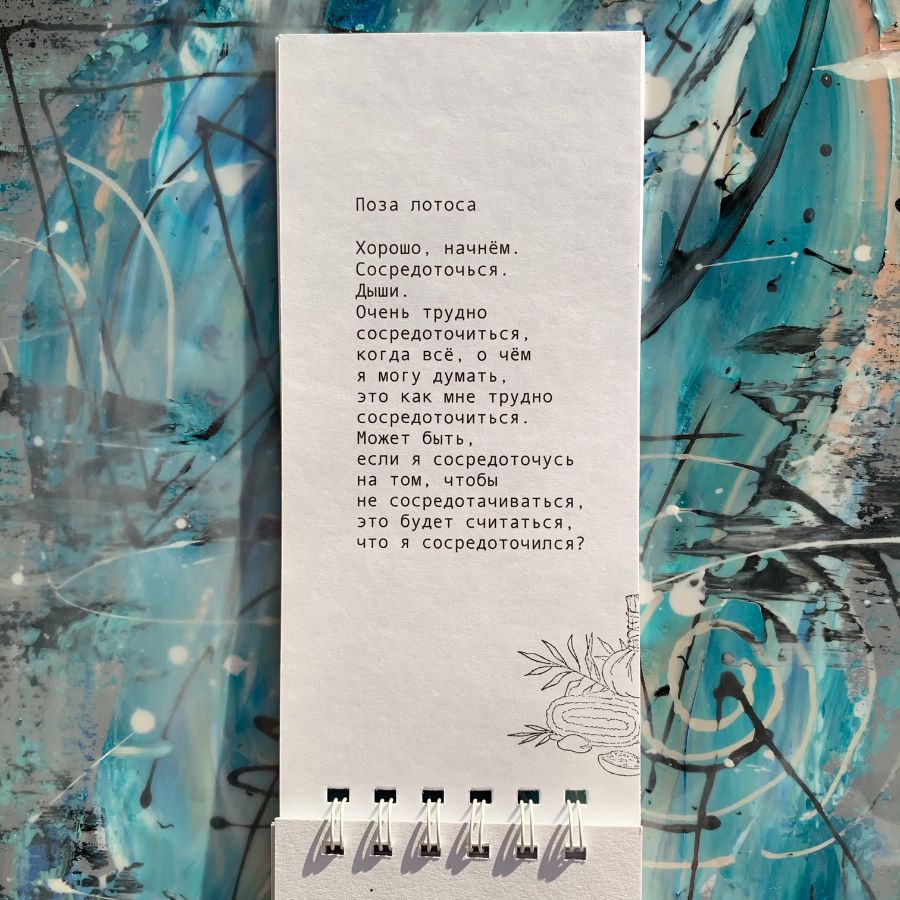 Поза лотоса
Хорошо, начнём.
Сосредоточься.
Дыши.
Очень трудно
сосредоточиться,
когда всё, о чём
я могу думать,
это как мне трудно
сосредоточиться.
Может быть,
если я сосредоточусь
на том, чтобы
не сосредотачиваться,
это будет считаться,
что я сосредоточился?